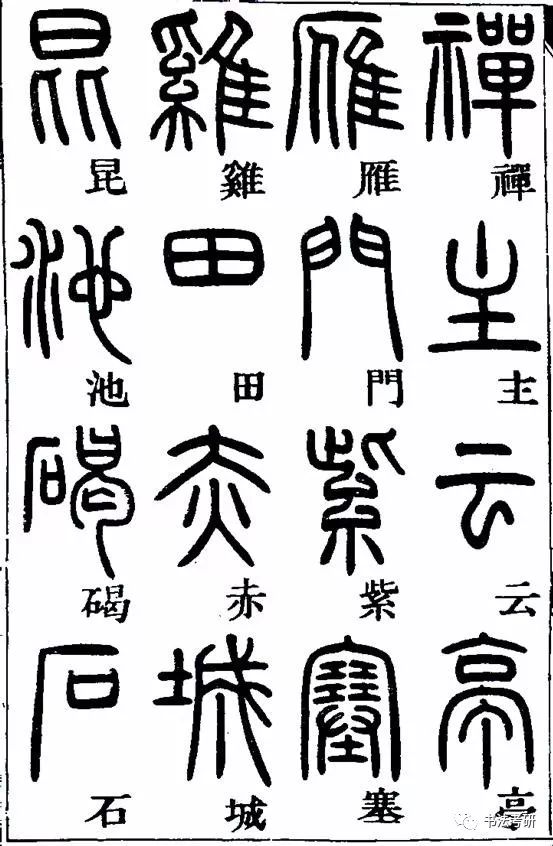 禪禪主主云云亭亭
雁雁門門紫紫塞塞
雞雞田田赤赤城城
昆昆池池碣碣石石
书法考研